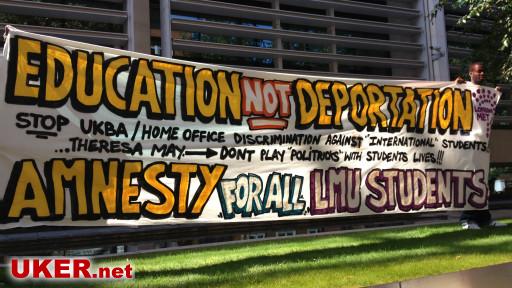 EDUCATION NOT DEPORTATION
STOP UKBA/HOME OFFICE DISCRIMINATION AGAINST "INTERNATIONAL" STUDENTS
...THERESA MAY → DONT PLAY "POLITRICKS" WITH STUDENTS LIVES!!!
AMNESTY FOR ALL LMU STUDENTS
LONDON MET
UKER.net